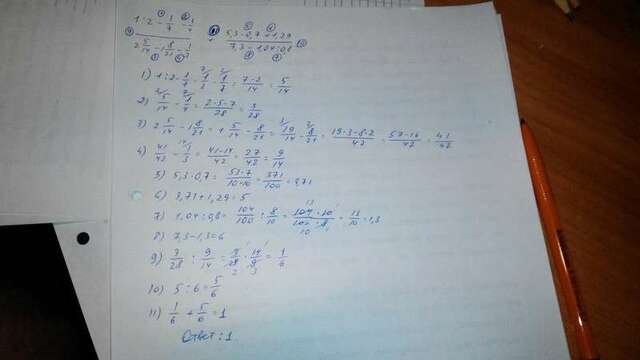 (1:2 - 1/7 - 1/4) / (2 5/14 - 1 8/21 - 1/3) + (5,3·0,7 + 1,29) / (7,3 - 1,04:0,8)
1) 1:2 - 1/7 = 1/2 - 1/7 = (7-2)/14 = 5/14
2) 5/14 - 1/4 = (2·5-7)/28 = 3/28
3) 2 5/14 - 1 8/21 = 1 5/14 - 8/21 = 19/14 - 8/21 = (19·3-8·2)/42 = (57-16)/42 = 41/42
4) 41/42 - 1/3 = (41-14)/42 = 27/42 = 9/14
5) 5,3·0,7 = (53·7)/(10·10) = 371/100 = 3,71
6) 3,71+1,29=5
7) 1,04:0,8 = 104/100 : 8/10 = (104·10)/(100·8) = 13/10 = 1,3
8) 7,3-1,3=6
9) 3/28 : 9/14 = 3/28 · 14/9 = 1/6
10) 5:6 = 5/6
11) 1/6 + 5/6 = 1
Ответ: 1